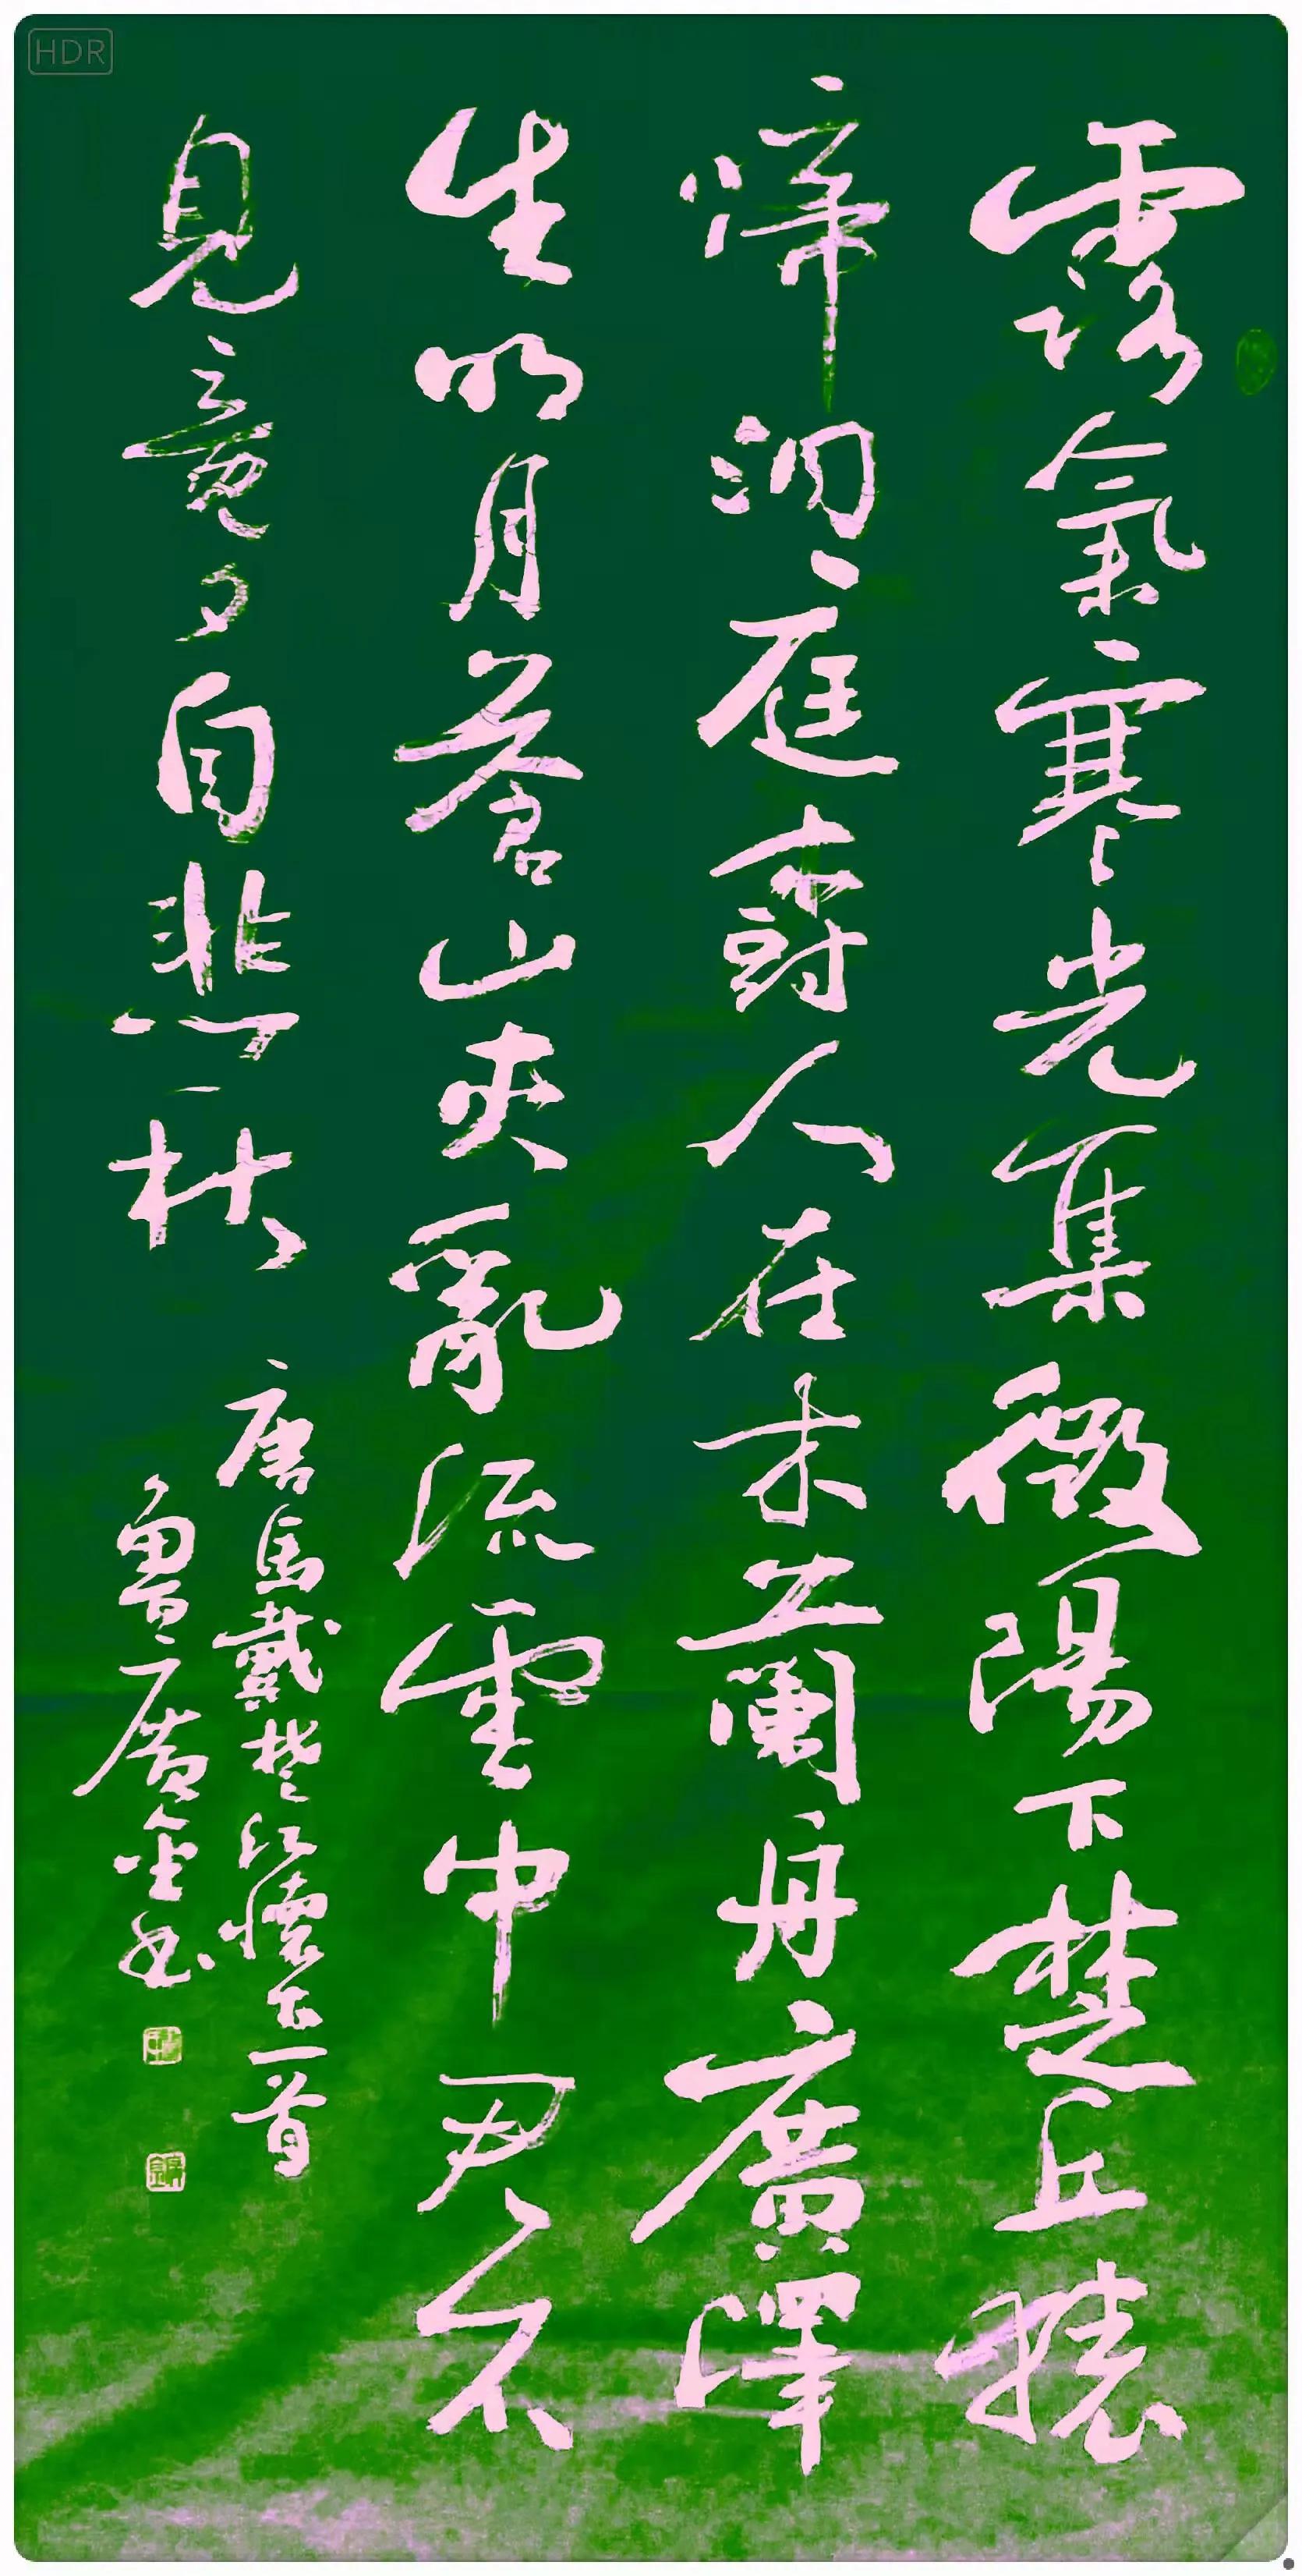 HDR
露氣寒光集微陽下楚丘猿
啼洞庭樹人在木蘭舟廣澤
生明月蒼山夾亂流雲中君不
見竟夕自悲秋
唐馬戴楚江懷古一首
魯廣金书